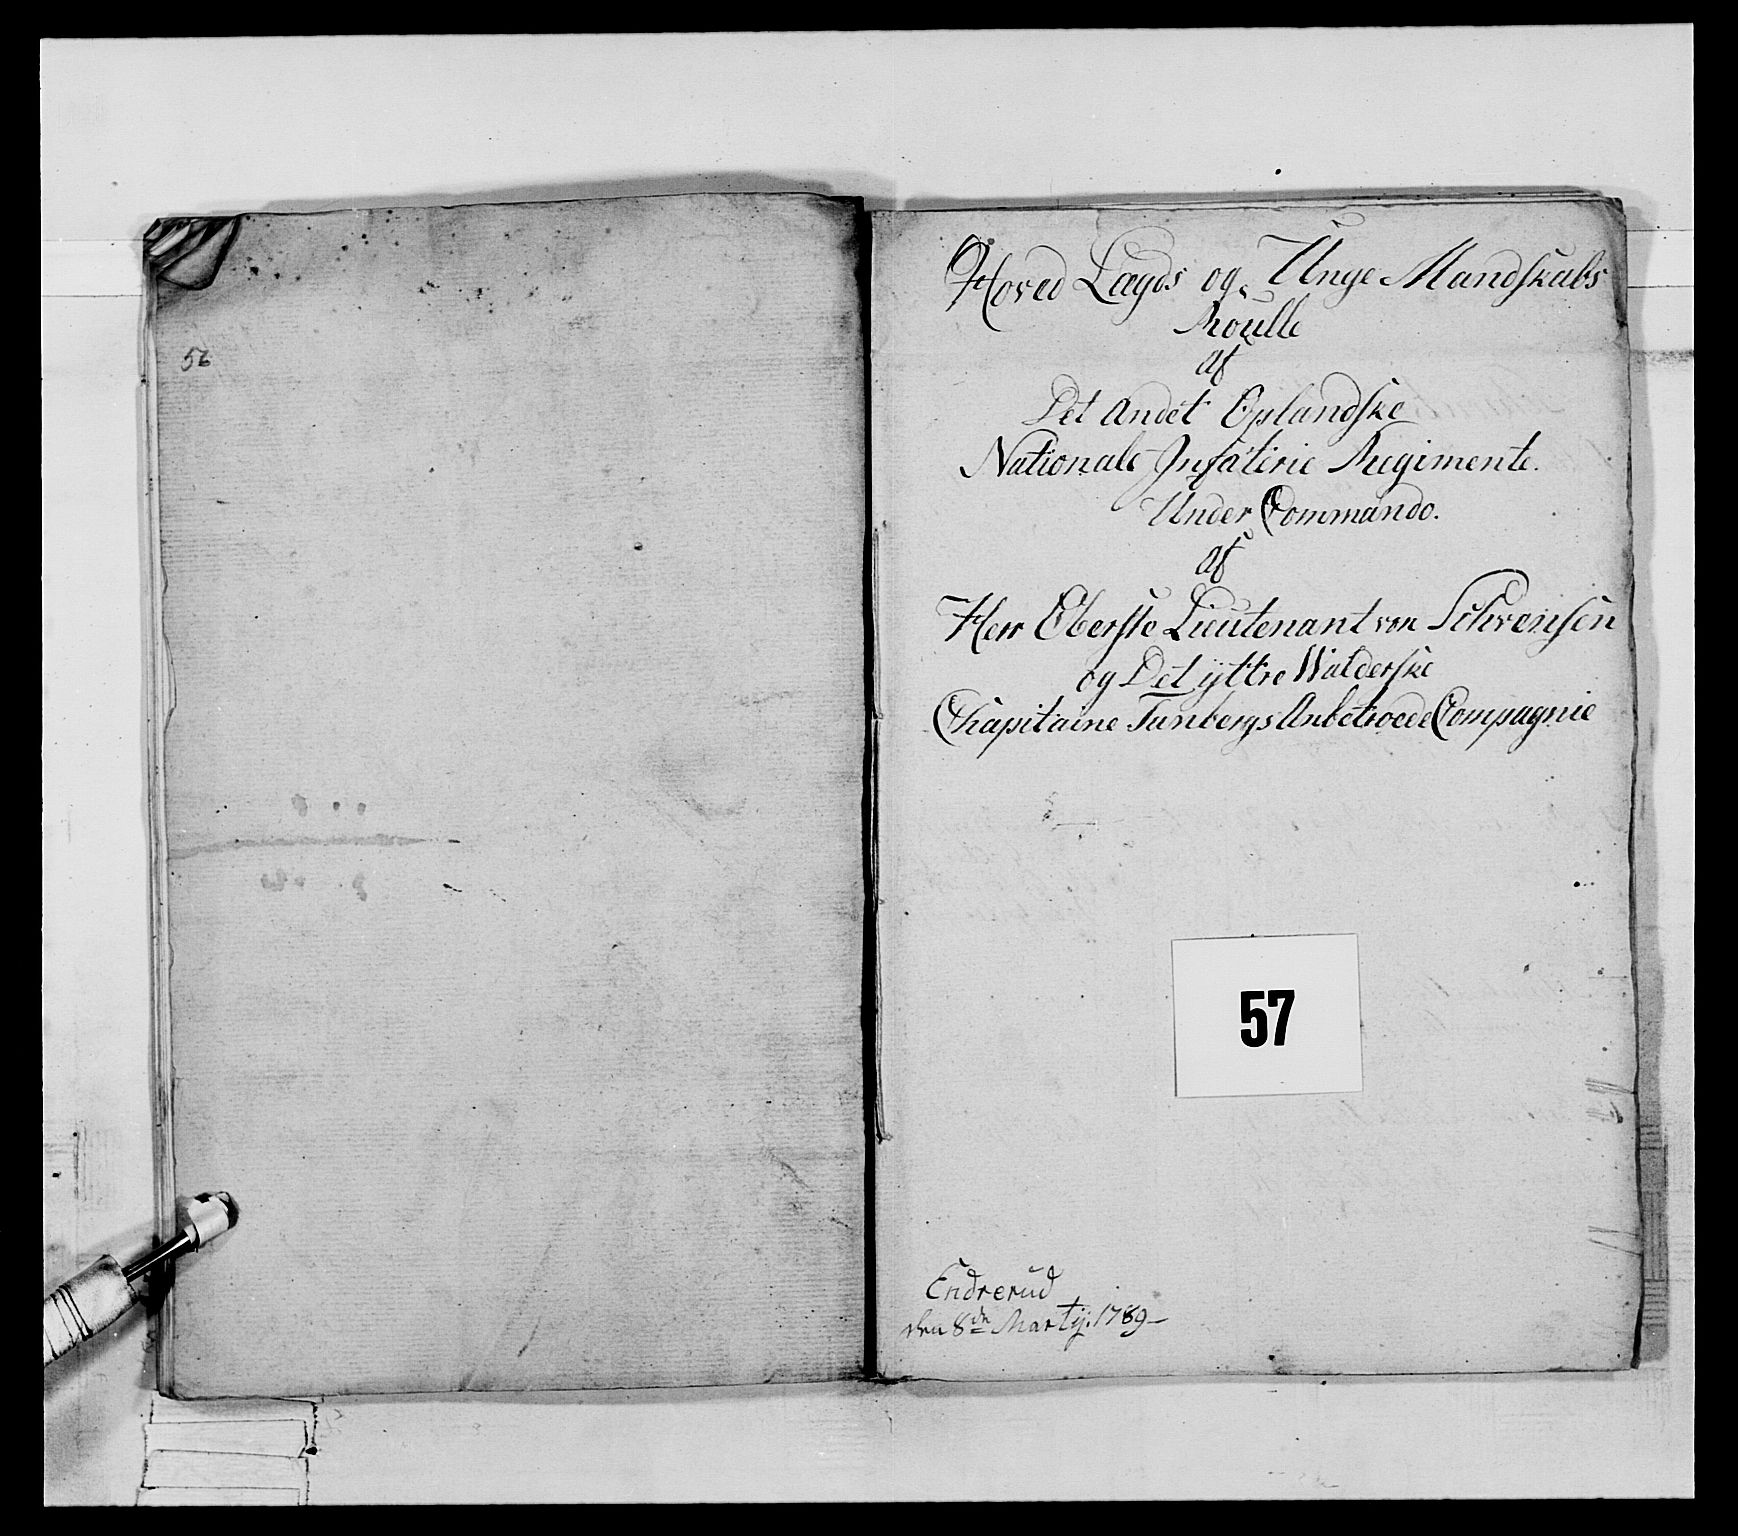 56
Hoved Lægds og Unge Mandskabs
Roulle
af
Det Andet Oplandske
Nationale Infaterie Regimente.
Under Commando.
af
Herr Oberste Lieutenant von Schwensen
og Det yttre Walderske
Chapitaine Tunbergs Anbetroede Compagnie
57
Endrerud
den 8de Martij. 1789